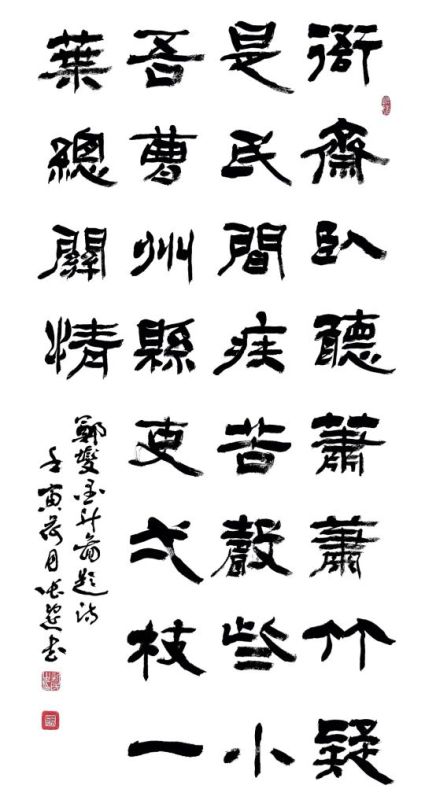 衙齋臥聽蕭蕭竹疑
是民間疾苦聲些小
吾曹州縣吏弌枝一
葉總關情
鄭燮墨竹圖題詩
壬寅荷月書